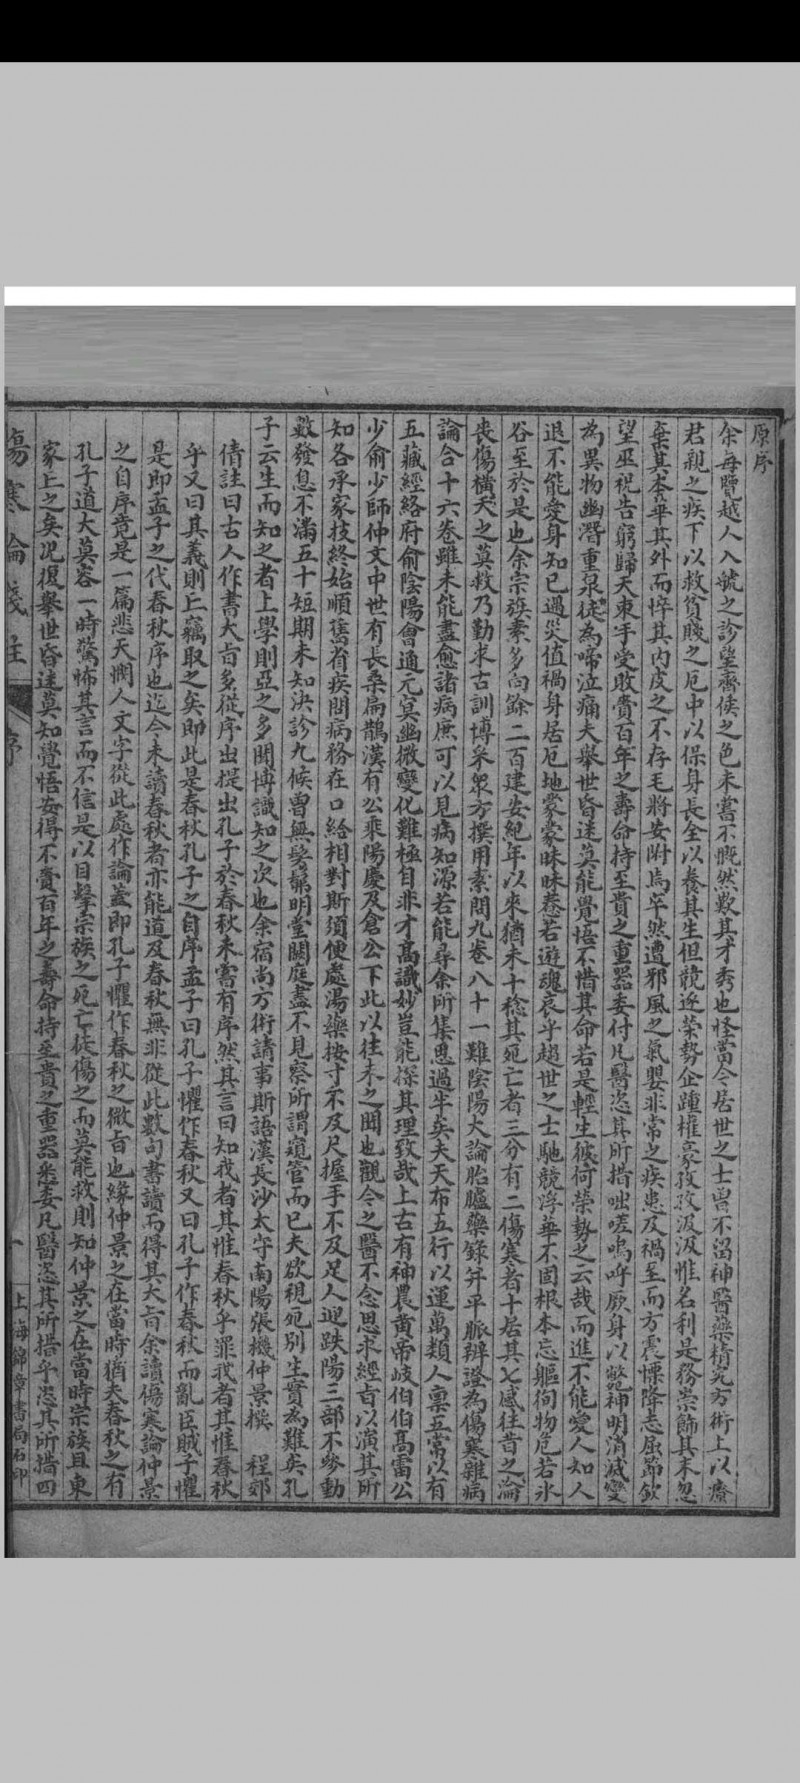 原序
余每覽越人入虢之診望齊侯之色未嘗不慨然歎其才秀也怪當今居世之士曾不留神醫藥精究方術上以療
君親之疾下以救貧賤之厄中以保身長全以養其生但競逐榮勢企踵權豪孜孜汲汲惟名利是務崇飾其末忽
棄其本華其外而悴其內皮之不存毛將安附焉卒然遭邪風之氣嬰非常之疾患及禍至而方震慄降志屈節欽
望巫祝告窮歸天束手受敗賫百年之壽命持至貴之重器委付凡醫恣其所措咄嗟嗚呼厥身以斃神明消滅變
為異物幽潛重泉徒為啼泣痛夫舉世昏迷莫能覺悟不惜其命若是輕生彼何榮勢之云哉而進不能愛人知人
退不能愛身知己遇災值禍身居厄地蒙蒙昧昧惷若遊魂哀乎趨世之士馳競浮華不固根本忘軀徇物危若冰
谷至於是也余宗族素多向餘二百建安紀年以來猶未十稔其死亡者三分有二傷寒者十居其七感往昔之淪
喪傷橫夭之莫救乃勤求古訓博采眾方撰用素問九卷八十一難陰陽大論胎臚藥錄并平脈辨證為傷寒雜病
論合十六卷雖未能盡愈諸病庶可以見病知源若能尋余所集思過半矣夫天布五行以運萬類人稟五常以有
五藏經絡府俞陰陽會通元冥幽微變化難極自非才高識妙豈能探其理致哉上古有神農黄帝岐伯伯高雷公
少俞少師仲文中世有長桑扁鵲漢有公乘陽慶及倉公下此以往未之聞也觀今之醫不念思求經旨以演其所
知各承家技終始順舊省疾問病務在口給相對斯須便處湯藥按寸不及尺握手不及足人迎趺陽三部不參動
數發息不滿五十短期未知決診九候曾無髣髴明堂闕庭盡不見察所謂窺管而已夫欲視死別生實為難矣孔
子云生而知之者上學則亞之多聞博識知之次也余宿尚方術請事斯語漢長沙太守南陽張機仲景撰　程郊
倩註曰古人作書大旨多從序出提出孔子於春秋未嘗有序然其言曰知我者其惟春秋乎罪我者其惟春秋
乎又曰其義則丘竊取之矣即此是春秋孔子之自序孟子曰孔子懼作春秋又曰孔子作春秋而亂臣賊子懼
是即孟子之代春秋序也迄今未讀春秋者亦能道及春秋無非從此數句書讀而得其大旨余讀傷寒論仲景
之自序竟是一篇悲天憫人文字從此處作論蓋即孔子懼作春秋之微旨也緣仲景之在當時猶夫春秋之有
孔子道大莫容一時驚怖其言而不信是以目擊宗族之死亡徒傷之而莫能救則知仲景之在當時宗族且東
家上之矣况復舉世昏迷莫知覺悟安得不賫百年之壽命持至貴之重器悉委凡醫恣其所措乎恣其所措四
傷寒論淺註　序　一　上海錦章書局石印